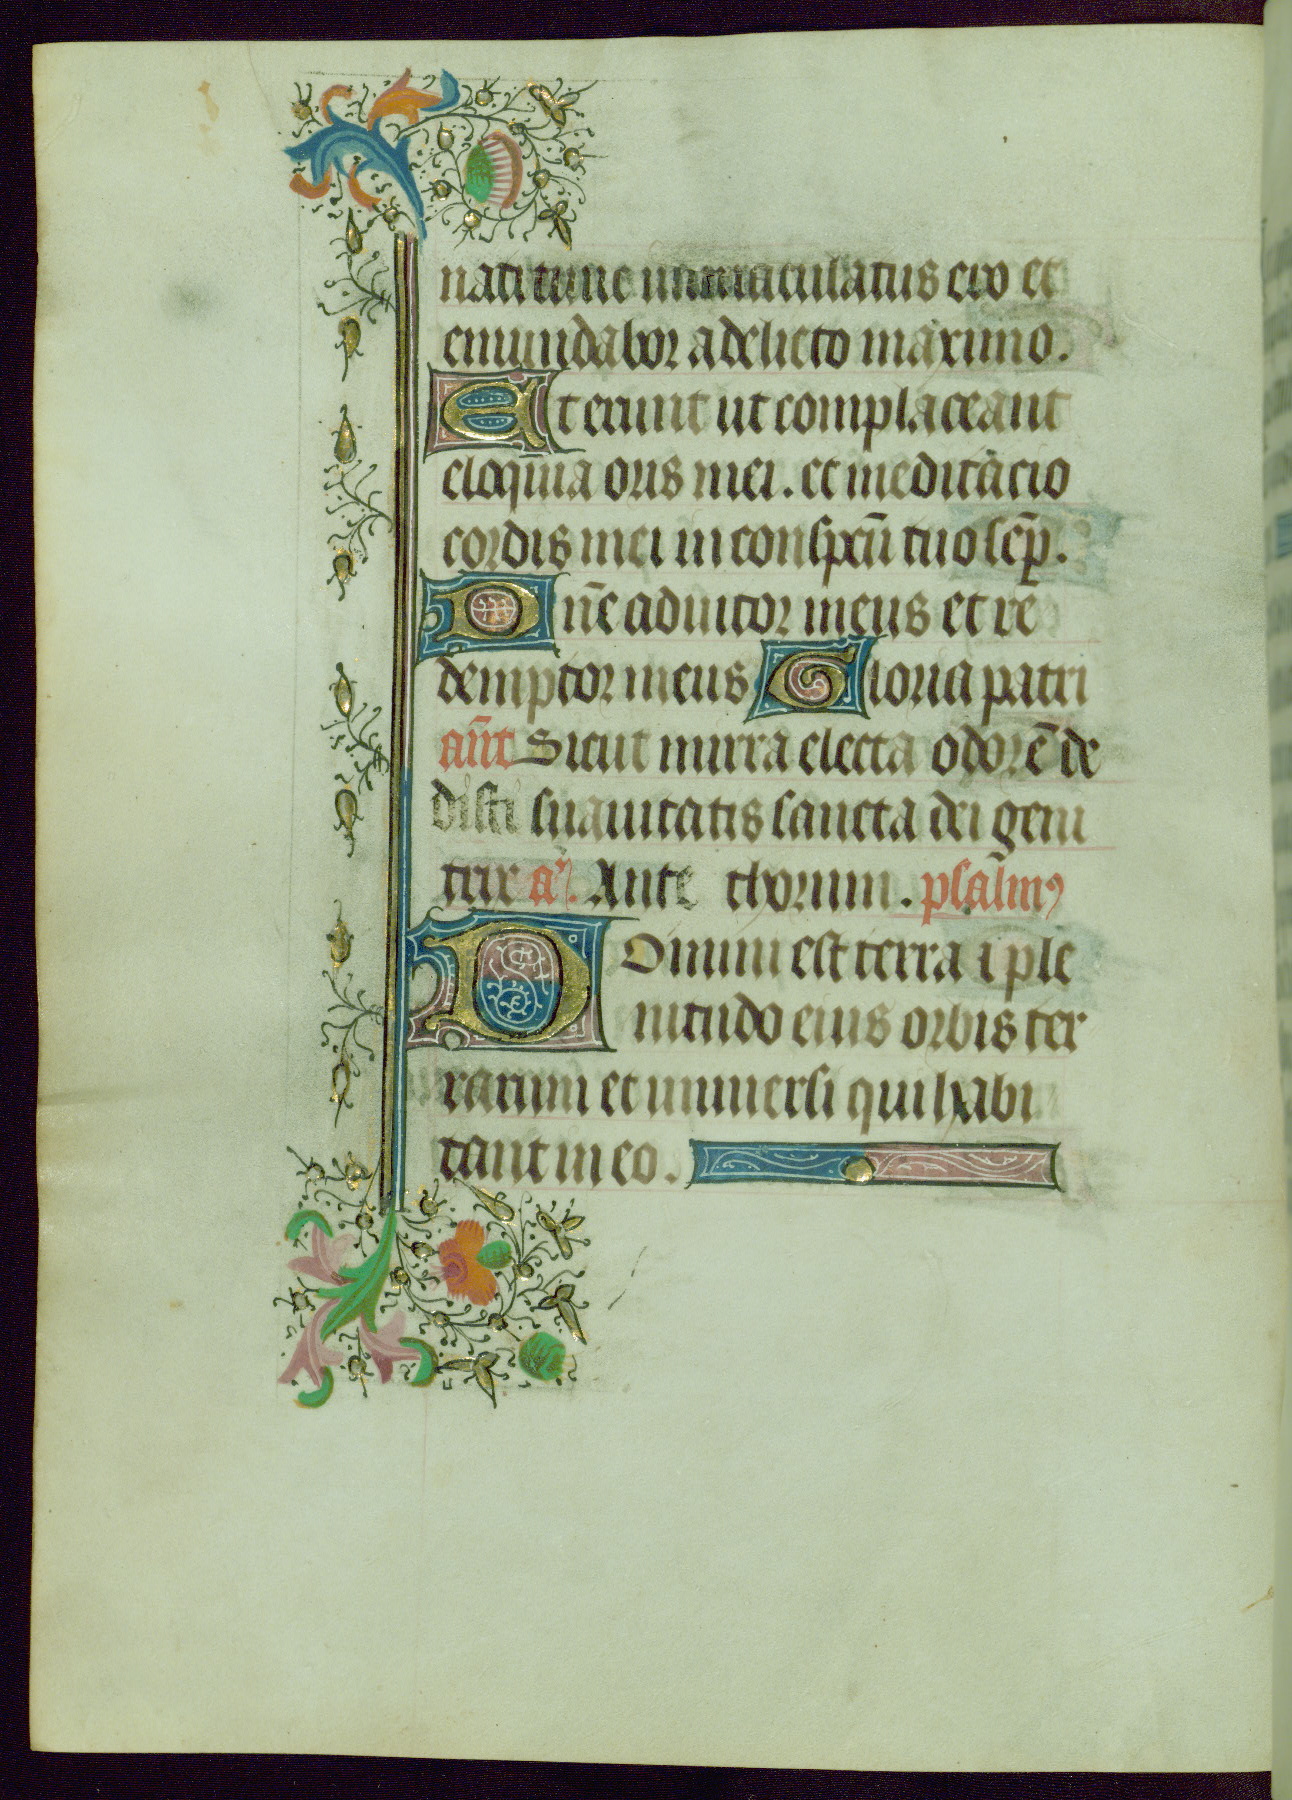 nati tunc inmaculatus ero et
emundabor a delicto maximo.
Et erunt ut complaceant
eloquia oris mei. et meditacio
cordis mei in conspcū tuo sēp.
Dn̄e adiutor meus et re
demptor meus Gloria patri
an̄t Sicut mirra electa odorē de
disti suauitatis sancta dei geni
trix a'. Ante thorum. psalm̄ꝰ
Domini est terra ⁊ ple
nitudo eius orbis ter
rarum et uniuersi qui habi
tant in eo.